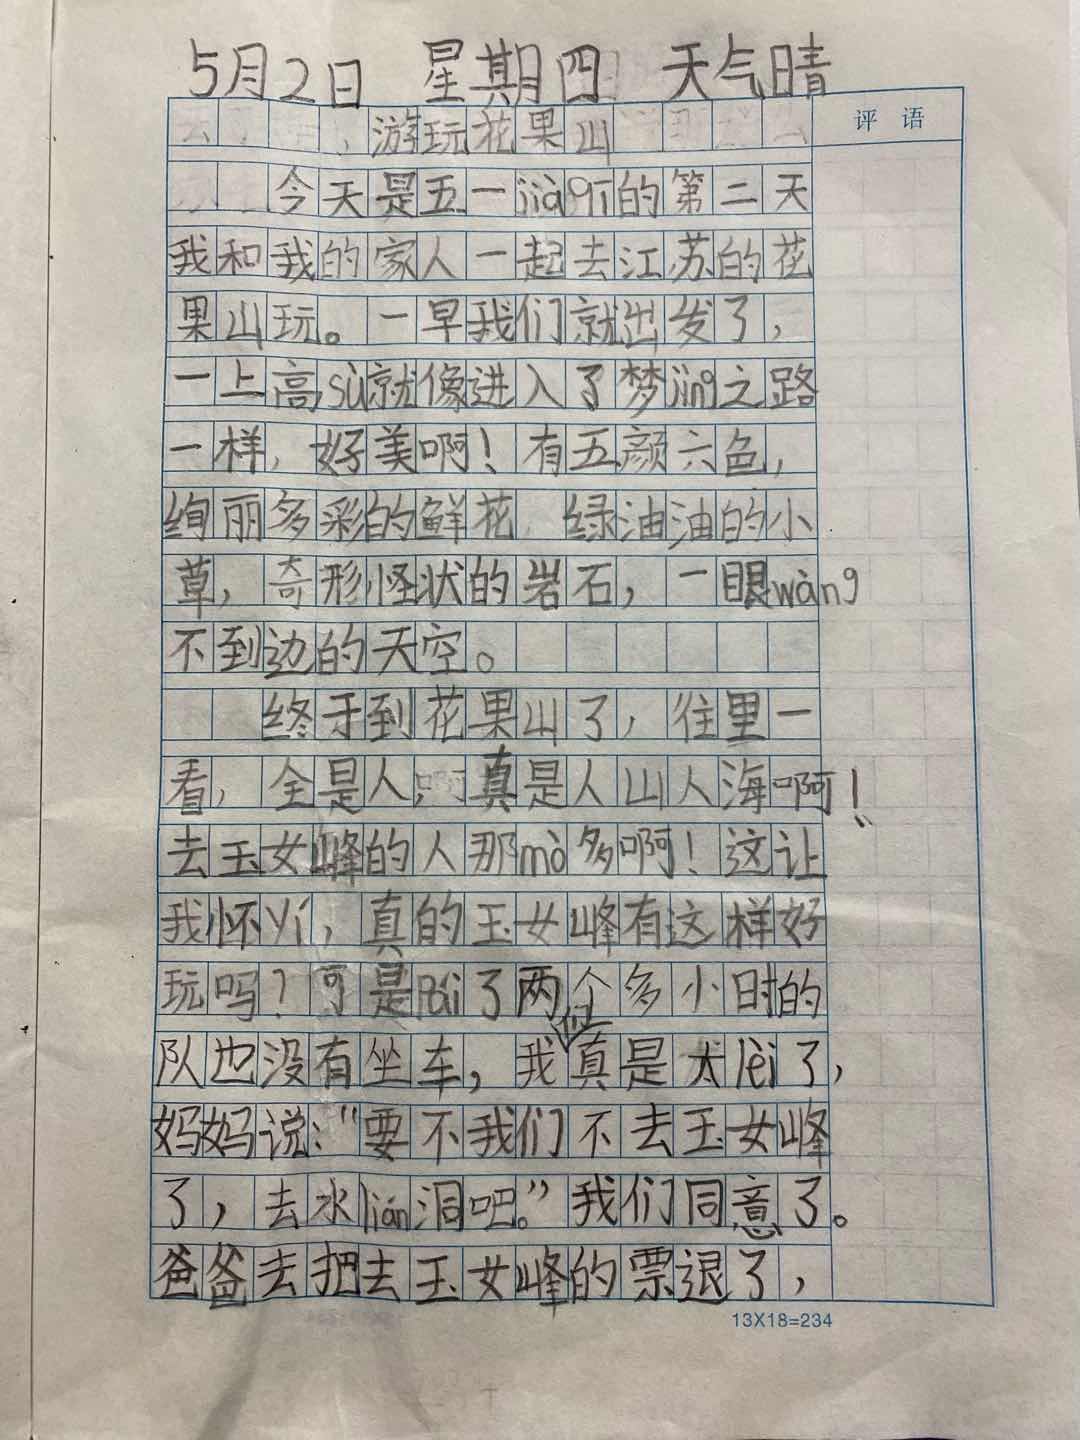 5月2日 星期四 天气晴
评语
游玩花果山
今天是五一jiàqī的第二天
我和我的家人一起去江苏的花
果山玩。一早我们就出发了，
一上高sù就像进入了梦jìng之路
一样，好美啊！有五颜六色，
绚丽多彩的鲜花 绿油油的小
草，奇形怪状的岩石，一眼wàng
不到边的天空。
终于到花果山了，往里一
看，全是人，真是人山人海啊！
去玉女峰的人那mò多啊！这让
我怀yí，真的玉女峰有这样好
玩吗？可是Pái了两个多小时的
队也没有坐车，我真是太lèi了，
妈妈说：“要不我们不去玉女峰
了，去水lián洞吧。”我们同意了。
爸爸去把去玉女峰的票退了，
13X18=234